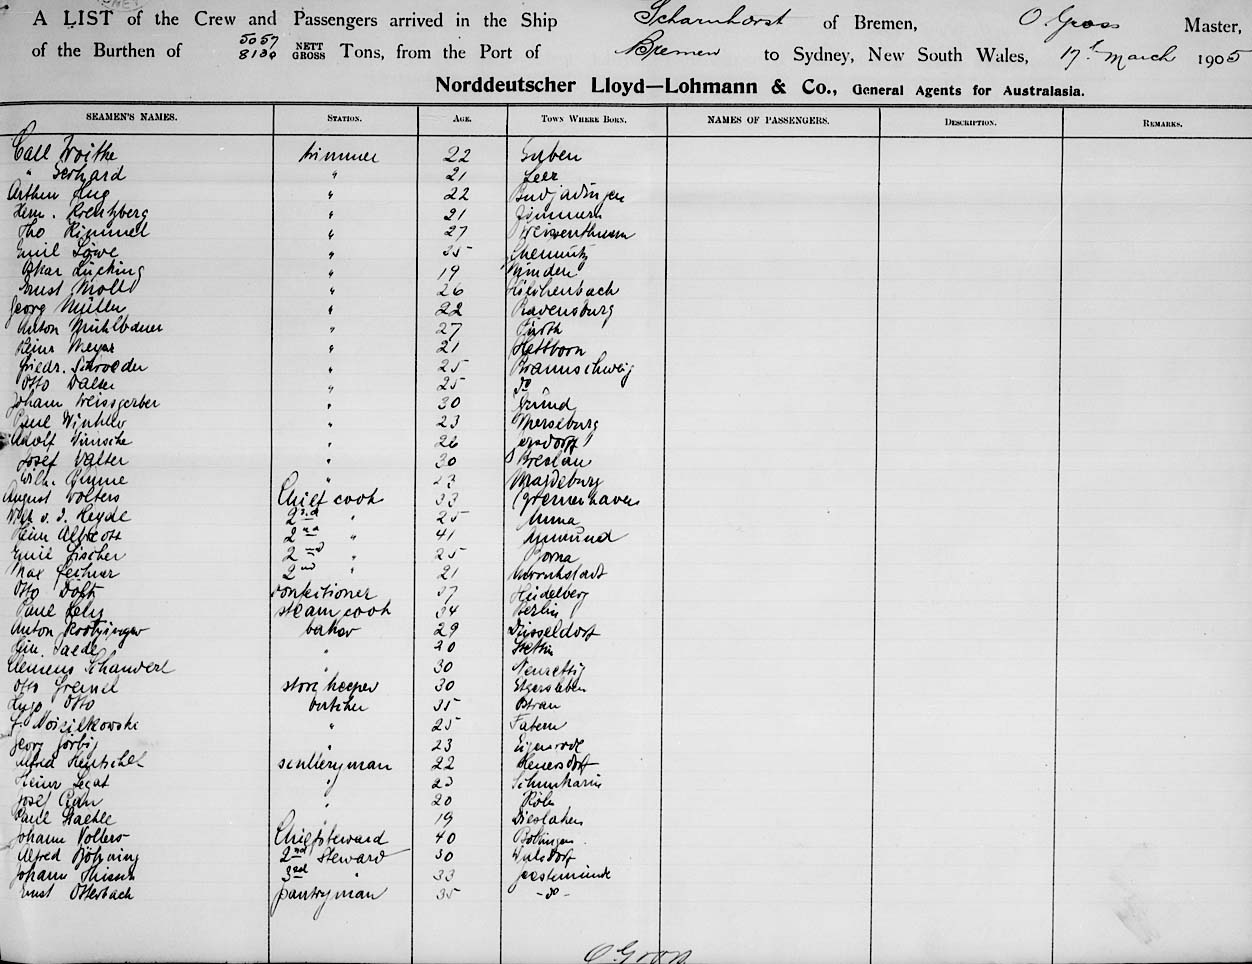 A LIST of the Crew and Passengers arrived in the Ship Scharnhorst of Bremen, O Gross Master,
of the Burthen of 5057 NETT 8130 GROSS Tons, from the Port of Bremen to Sydney, New South Wales, 17th March 1905
Norddeutscher Lloyd—Lohmann & Co., General Agents for Australasia.
SEAMEN'S NAMES. STATION. AGE. TOWN WHERE BORN. NAMES OF PASSENGERS. DESCRIPTION. REMARKS.
Call Woithe trimmer 22 Guben
" Gerhard " 21 Leer
Arthur Hug " 22 Budjadingen
Herm. Kreutzberg " 21 Zimmern
Tho Kimmel " 27
Emil Löwe " 35 Chemnitz
Oskar Lücking " 19 Minden
Ernst Moll " 26
Georg Müller " 22 Ravensburg
Anton Mühlbauer " 27 Fürth
Heinr Meyer " 21
Friedr. Schroeder " 25 Braunschweig
Otto Walter " 25 do
Johann Weissgerber " 30 Gmünd
Paul Winkler " 23 Merseburg
Adolf Wünsche " 26
Josef Walter " 30 Breslau
Wilh. Blume " 23 Magdeburg
August Wolters Chief cook 33 Bremerhaven
v. d. Heyde 2nd " 25 Unna
Heinr Albrecht 2nd " 41
Emil Fischer 2nd " 25 Borna
Max Lechner 2nd " 21
Otto confectioner 37 Heidelberg
Paul steam cook 34 Berlin
Anton baker 29 Düsseldorf
" 20 Stettin
Clemens " 30
Otto store keeper 30 Etgersleben
Hugo Otto butcher 35 Ostrau
" 25
Georg " 23
Alfred Hentschel scullery man 22
Heinr Legat " 23
Josef " 20 Köln
Paul " 19 Dinslaken
Johann Volters Chief steward 40
Alfred Böhning 2nd steward 30 Wulsdorf
Johann Thissen 3rd " 33 Geestemünde
Ernst Otterbach pantryman 35 - do -
O Gross